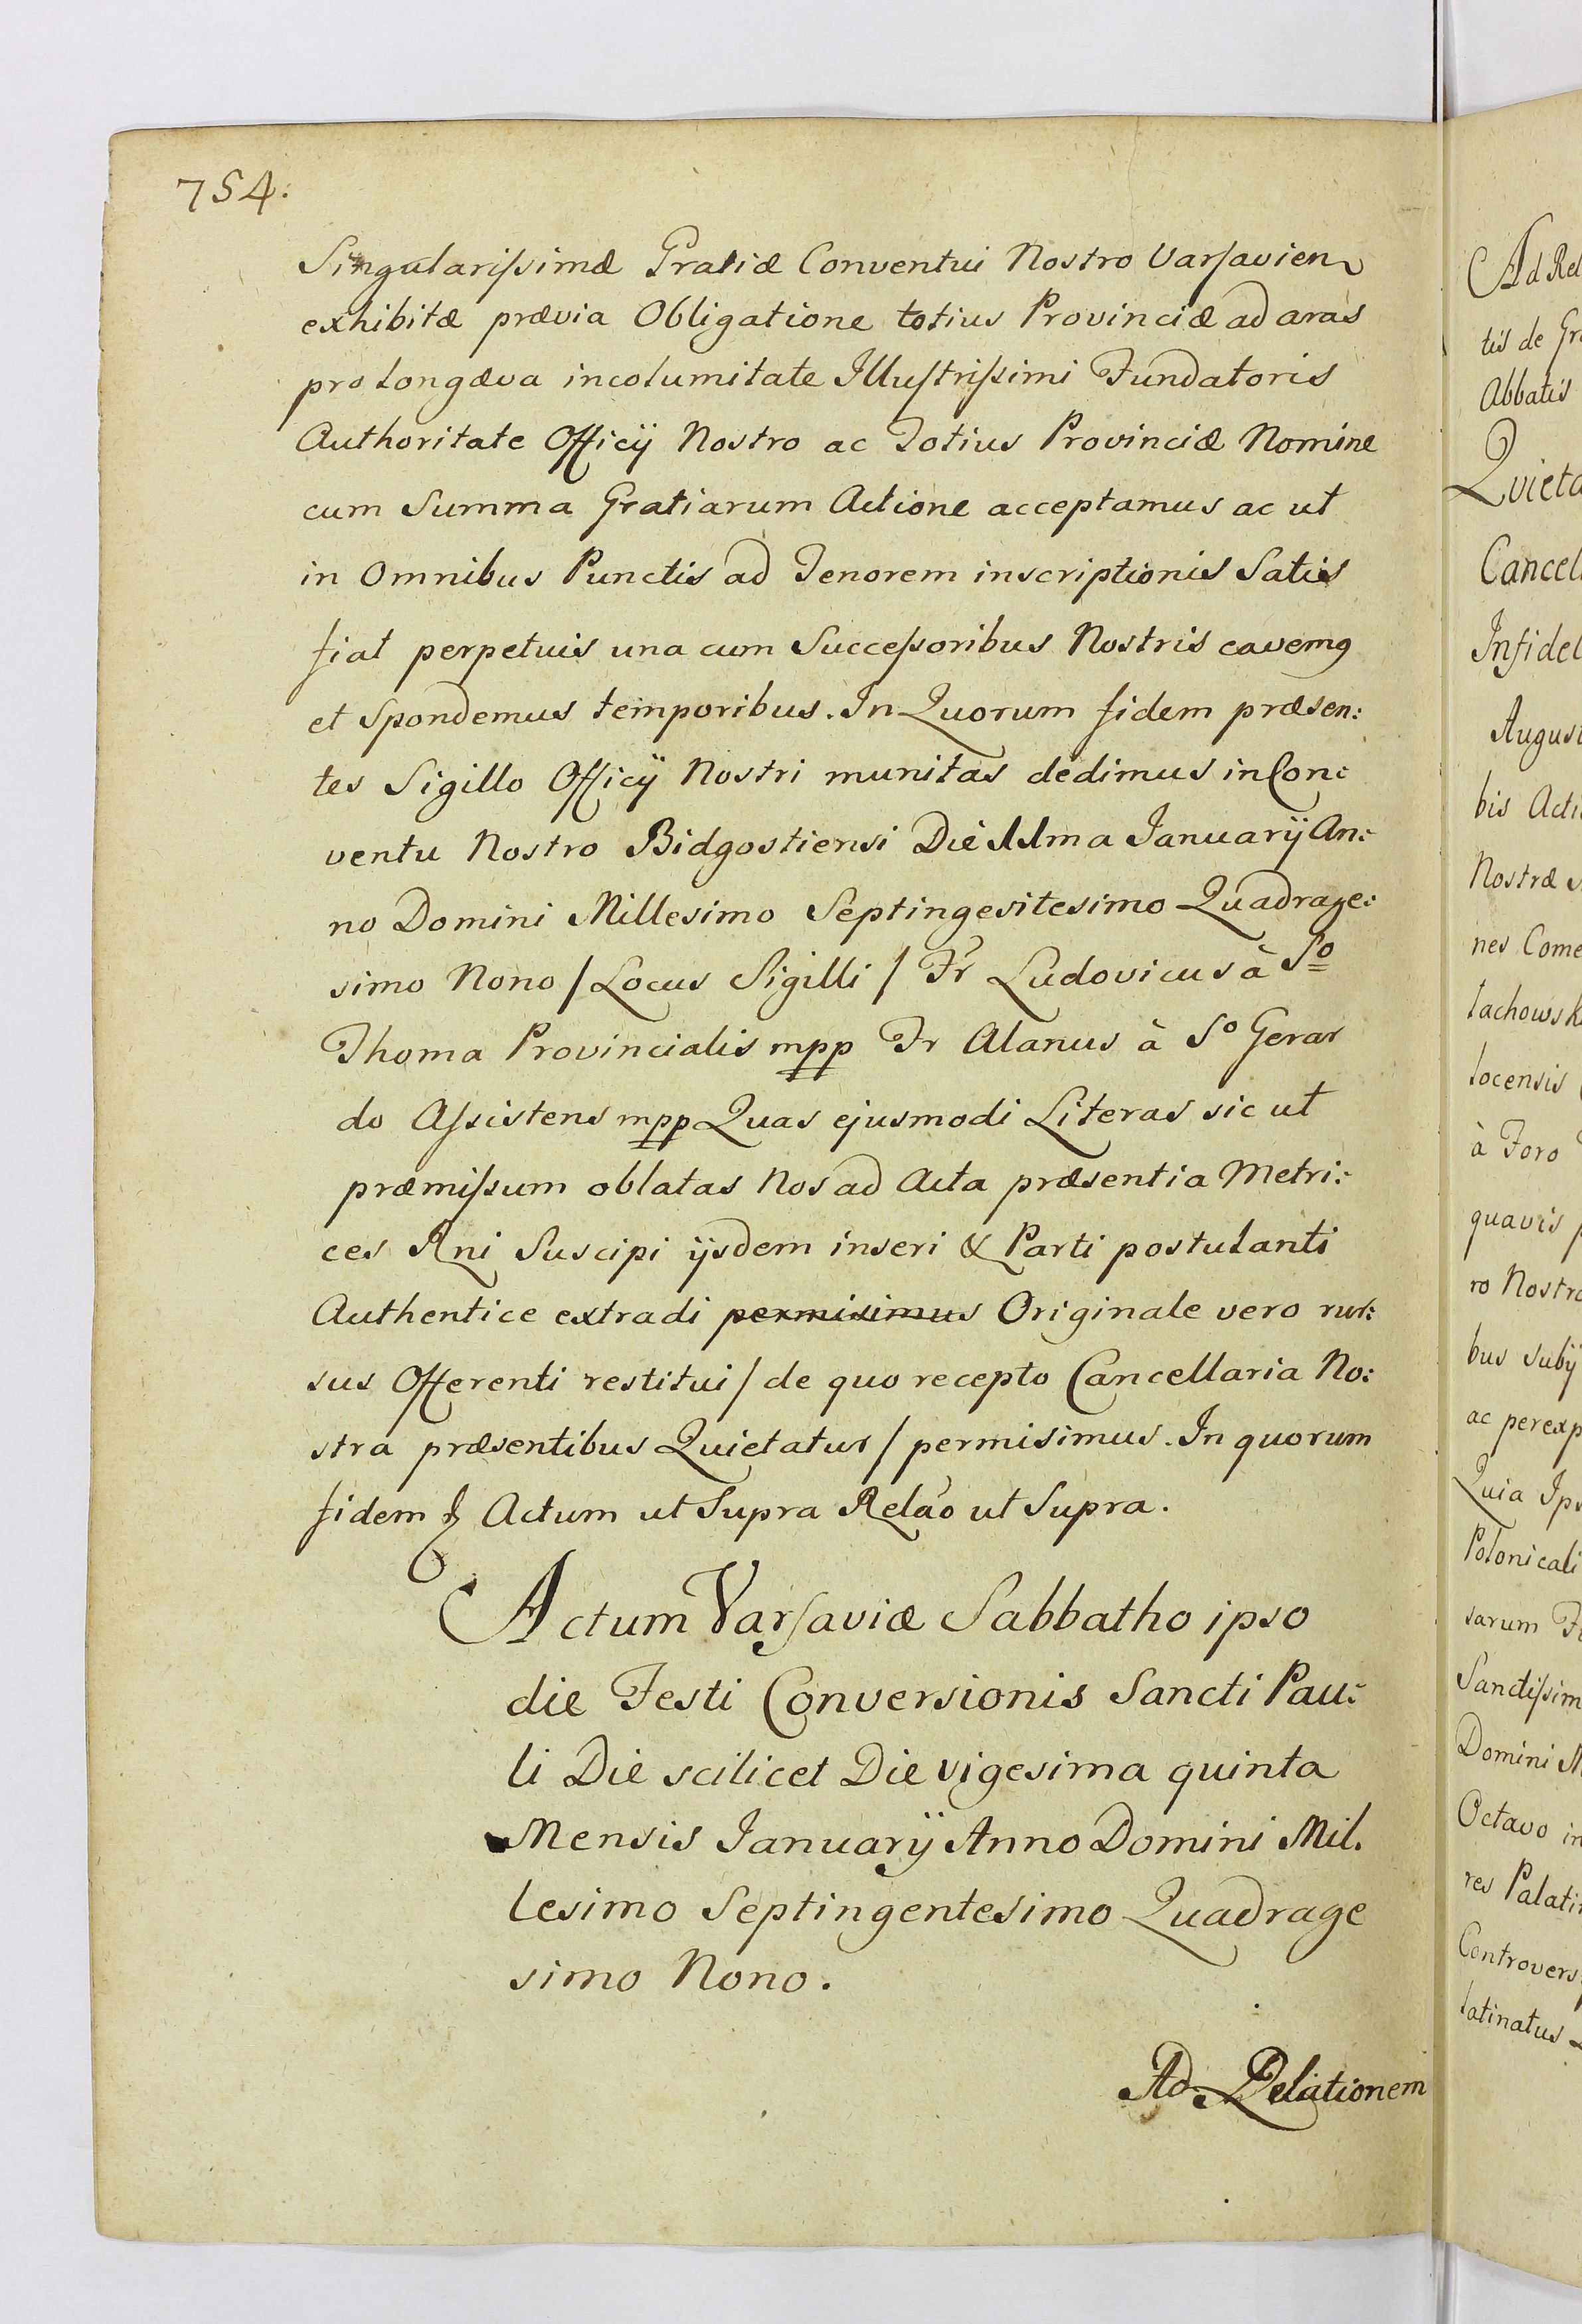 754.
Singularissimæ Gratiæ Conventui Nostro Varsavien
exhibitæ prævia Obligatione totius Provinciæ ad aras
pro longæva incolumitate Illustrissimi Fundatoris
Authoritate Officij Nostro ac Totius Provinciæ Nomine
cum Summa Gratiarum Actione acceptamus ac ut
in Omnibus Punctis ad Tenorem inscriptionis Satis
fiat perpetuis una cum Successoribus Nostris cavemq
et Spondemus temporibus. In Quorum fidem præsen:
tes Sigillo Officij Nostri munitas dedimus in Con:
ventu Nostro Bidgostiensi Die 11ma Januarij An:
no Domini Millesimo Septingesitesimo Quadrage:
simo Nono / Locus Sigilli / Fr Ludovicus à So
Thoma Provincialis mpp Fr Alanus à So Gerar
do Assistens mpp Quas ejusmodi Literas sic ut
præmissum oblatas Nos ad Acta præsentia Metri:
ces Rni Suscipi ijsdem inseri & Parti postulanti
Authentice extradi permisimus Originale vero rur:
sus Offerenti restitui / de quo recepto Cancellaria No:
stra præsentibus Quietatur / permisimus. In quorum
fidem Actum ut Supra Relão ut Supra.
Actum Varsaviæ Sabbatho ipso
die Festi Conversionis Sancti Pau:
li Die scilicet Die vigesima quinta
Mensis Januarij Anno Domini Mil.
lesimo Septingentesimo Quadrage
simo Nono.
Ad Relationem
Ad Rel
tis de Gr
Abbatis
Quieta
Cancel
Infidel
August
bis Acti
Nostræ
nes Come
tachowsk
locensis
à Foro
quavis
ro Nostro
bus subij
ac perexp
Quia Ips
Polonicali
sarum
Sanctissim
Domini M
Octavo in
res Palatin
Controvers
latinatus